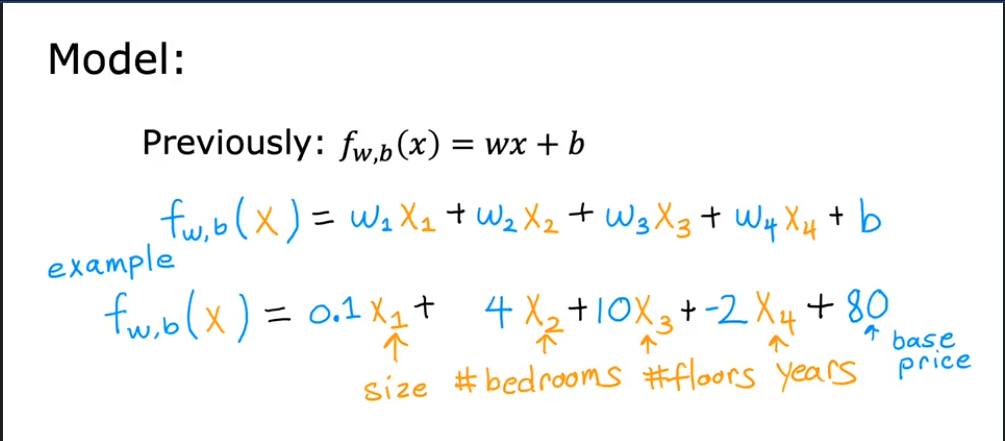 Model:
Previously: f_{w,b}(x) = wx + b
f_{w,b}(X) = w₁X₁ + w₂X₂ + w₃X₃ + w₄X₄ + b
example
f_{w,b}(X) = 0.1 X₁ + 4 X₂ + 10X₃ + -2 X₄ + 80
↑ ↑ ↑ ↑ ↑ base price
size #bedrooms #floors years